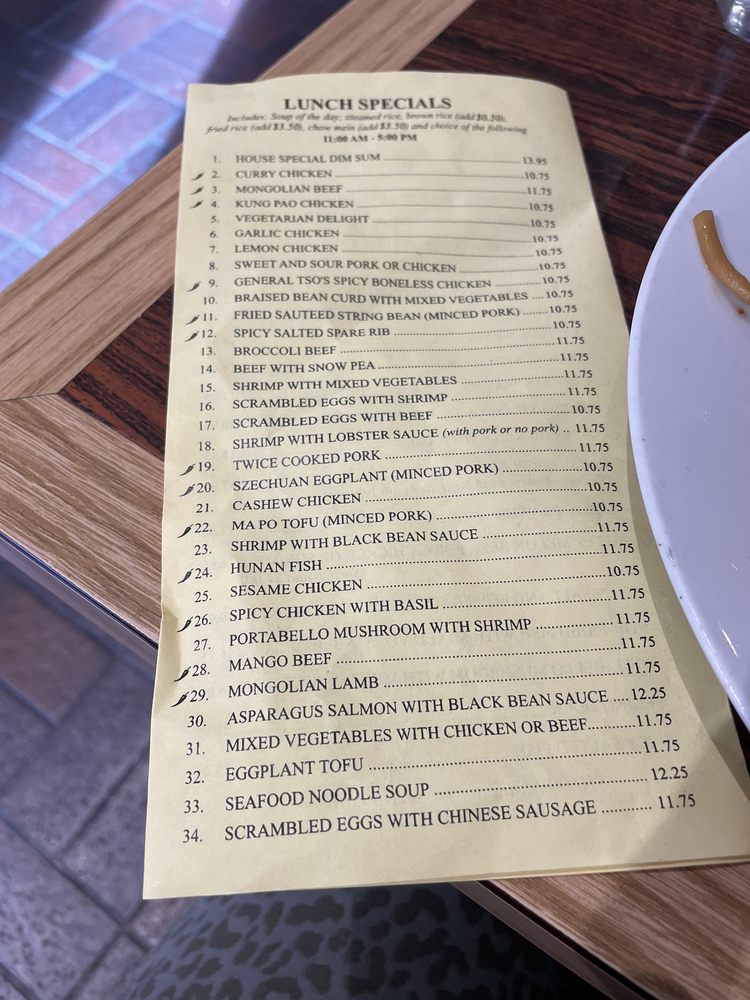 LUNCH SPECIALS
Includes: Soup of the day, steamed rice, brown rice (add $0.50),
fried rice (add $3.50), chow mein (add $3.50) and choice of the following
11:00 AM - 5:00 PM
1. HOUSE SPECIAL DIM SUM 13.95
2. CURRY CHICKEN 10.75
3. MONGOLIAN BEEF 11.75
4. KUNG PAO CHICKEN 10.75
5. VEGETARIAN DELIGHT 10.75
6. GARLIC CHICKEN 10.75
7. LEMON CHICKEN 10.75
8. SWEET AND SOUR PORK OR CHICKEN 10.75
9. GENERAL TSO'S SPICY BONELESS CHICKEN 10.75
10. BRAISED BEAN CURD WITH MIXED VEGETABLES 10.75
11. FRIED SAUTEED STRING BEAN (MINCED PORK) 10.75
12. SPICY SALTED SPARE RIB 10.75
13. BROCCOLI BEEF 11.75
14. BEEF WITH SNOW PEA 11.75
15. SHRIMP WITH MIXED VEGETABLES 11.75
16. SCRAMBLED EGGS WITH SHRIMP 11.75
17. SCRAMBLED EGGS WITH BEEF 10.75
18. SHRIMP WITH LOBSTER SAUCE (with pork or no pork) 11.75
19. TWICE COOKED PORK 11.75
20. SZECHUAN EGGPLANT (MINCED PORK) 10.75
21. CASHEW CHICKEN 10.75
22. MA PO TOFU (MINCED PORK) 10.75
23. SHRIMP WITH BLACK BEAN SAUCE 11.75
24. HUNAN FISH 11.75
25. SESAME CHICKEN 10.75
26. SPICY CHICKEN WITH BASIL 11.75
27. PORTABELLO MUSHROOM WITH SHRIMP 11.75
28. MANGO BEEF 11.75
29. MONGOLIAN LAMB 11.75
30. ASPARAGUS SALMON WITH BLACK BEAN SAUCE 12.25
31. MIXED VEGETABLES WITH CHICKEN OR BEEF 11.75
32. EGGPLANT TOFU 11.75
33. SEAFOOD NOODLE SOUP 12.25
34. SCRAMBLED EGGS WITH CHINESE SAUSAGE 11.75